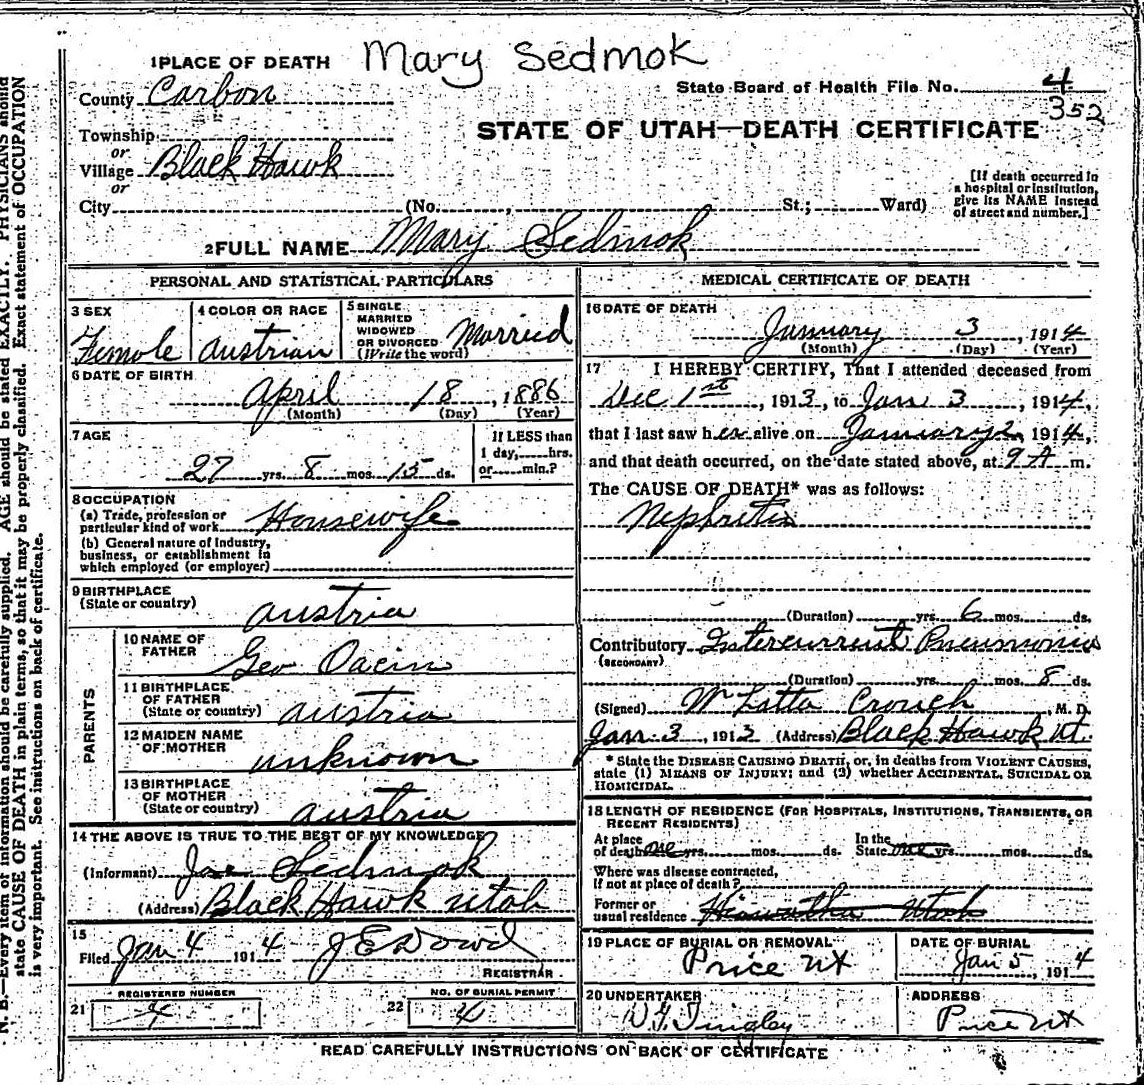 Mary Sedmok
1 PLACE OF DEATH
County Carbon
State Board of Health File No. 4
352
Township
or
Village Black Hawk
or
STATE OF UTAH—DEATH CERTIFICATE
[If death occurred in
a hospital or institution,
give its NAME instead
of street and number.]
City (No. , St.; Ward)
2 FULL NAME Mary Sedmok
PERSONAL AND STATISTICAL PARTICULARS
3 SEX
Female
4 COLOR OR RACE
Austrian
5 SINGLE
MARRIED
WIDOWED
OR DIVORCED
(Write the word)
Married
6 DATE OF BIRTH
April 18, 1886
(Month) (Day) (Year)
7 AGE
27 yrs. 8 mos. 15 ds.
If LESS than
1 day, hrs.
or min.?
8 OCCUPATION
(a) Trade, profession or
particular kind of work Housewife
(b) General nature of industry,
business, or establishment in
which employed (or employer)
9 BIRTHPLACE
(State or country)
Austria
PARENTS
10 NAME OF
FATHER
Geo
11 BIRTHPLACE
OF FATHER
(State or country) Austria
12 MAIDEN NAME
OF MOTHER
unknown
13 BIRTHPLACE
OF MOTHER
(State or country) Austria
14 THE ABOVE IS TRUE TO THE BEST OF MY KNOWLEDGE
(Informant) Joe Sedmok
(Address) Black Hawk Utah
15
Filed Jan 4 1914 J E Dowd
REGISTRAR
REGISTERED NUMBER
21 4
NO. OF BURIAL PERMIT
22 4
MEDICAL CERTIFICATE OF DEATH
16 DATE OF DEATH
January 3, 1914
(Month) (Day) (Year)
17 I HEREBY CERTIFY, That I attended deceased from
Dec 1st, 1913, to Jan 3, 1914,
that I last saw her alive on January 2, 1914,
and that death occurred, on the date stated above, at 9 A m.
The CAUSE OF DEATH* was as follows:
Nephritis
(Duration) yrs. 6 mos. ds.
Contributory Intercurrent Pneumonia
(SECONDARY)
(Duration) yrs. mos. 8 ds.
(Signed) Crouch, M. D.
Jan. 3, 1913 (Address) Black Hawk Ut.
* State the DISEASE CAUSING DEATH, or, in deaths from VIOLENT CAUSES,
state (1) MEANS OF INJURY; and (2) whether ACCIDENTAL, SUICIDAL OR
HOMICIDAL.
18 LENGTH OF RESIDENCE (FOR HOSPITALS, INSTITUTIONS, TRANSIENTS, OR
RECENT RESIDENTS)
At place
of death one yrs. mos. ds.
In the
State one yrs. mos. ds.
Where was disease contracted,
if not at place of death?
Former or
usual residence Hiawatha Utah
19 PLACE OF BURIAL OR REMOVAL
Price Ut
DATE OF BURIAL
Jan 5, 1914
20 UNDERTAKER
Tingley
ADDRESS
Price Ut
READ CAREFULLY INSTRUCTIONS ON BACK OF CERTIFICATE
N. B.—Every item of information should be carefully supplied. AGE should be stated EXACTLY. PHYSICIANS should
state CAUSE OF DEATH in plain terms, so that it may be properly classified. Exact statement of OCCUPATION
is very important. See instructions on back of certificate.